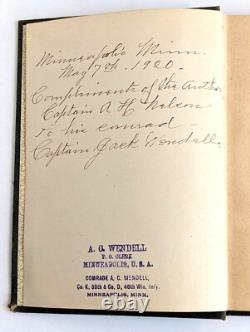 Minneapolis Minn.
May 7th. 1920.
Compliments of the Author
Captain A H Nelson
To his comrad
Captain Jack Wendell.
A. C. WENDELL
P. O. CLERK
MINNEAPOLIS, U. S. A.
COMRADE A. C. WENDELL,
Co K, 39th & Co, D, 46th Wis. Infy.
MINNEAPOLIS, MINN.
ebay